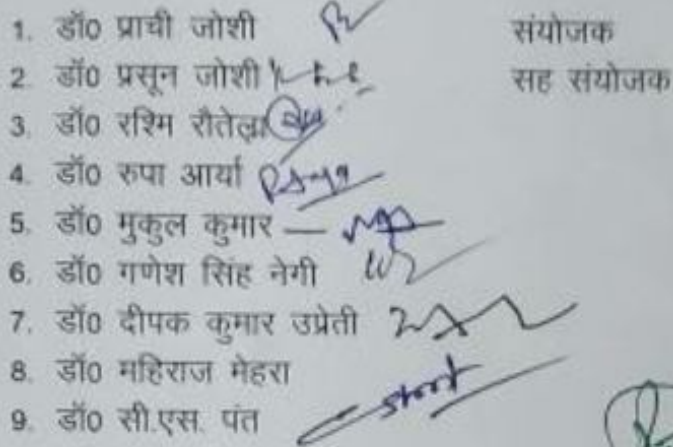 1. डॉ0 प्राची जोशी संयोजक
2. डॉ0 प्रसून जोशी सह संयोजक
3. डॉ0 रश्मि रौतेला
4. डॉ0 रुपा आर्या
5. डॉ0 मुकुल कुमार —
6. डॉ0 गणेश सिंह नेगी
7. डॉ0 दीपक कुमार उप्रेती
8. डॉ0 महिराज मेहरा
9. डॉ0 सी.एस. पंत